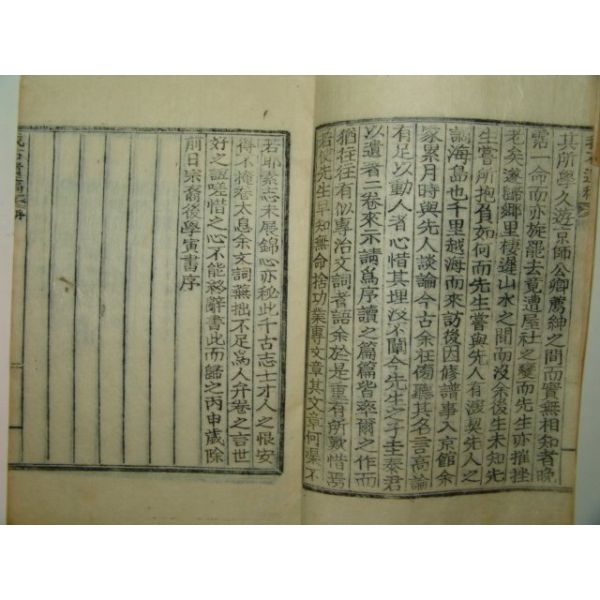 其所學久遊京師公卿薦紳之間而實無相知者晩
霑一命而亦旋罷去竟遭屋社之變而先生亦摧挫
老矣遂歸鄉里棲遲山水之間而沒余後生未知先
生嘗所抱負如何而先生嘗與先人有深契先人之
謫海島也千里越海而來訪後因修譜事入京館余
家累月時與先人談論今古余往傍聽其名言高論
有足以動人者心惜其埋沒不闡今先生之子圭泰君
以遺者二卷來示請爲序讀之篇篇皆率爾之作而
猶往往有似專治文詞者語余於是重有所歎惜焉
若使先生早知無命捨功業專文章其文章何渠不
若耶素志未展錦心亦秘此千古志士才人之恨安
得不掩卷太息余文詞蕪拙不足爲人弁卷之言世
好之誼嗟惜之心不能終辭書此而歸之丙申歲除
前日宗裔後學寅書序